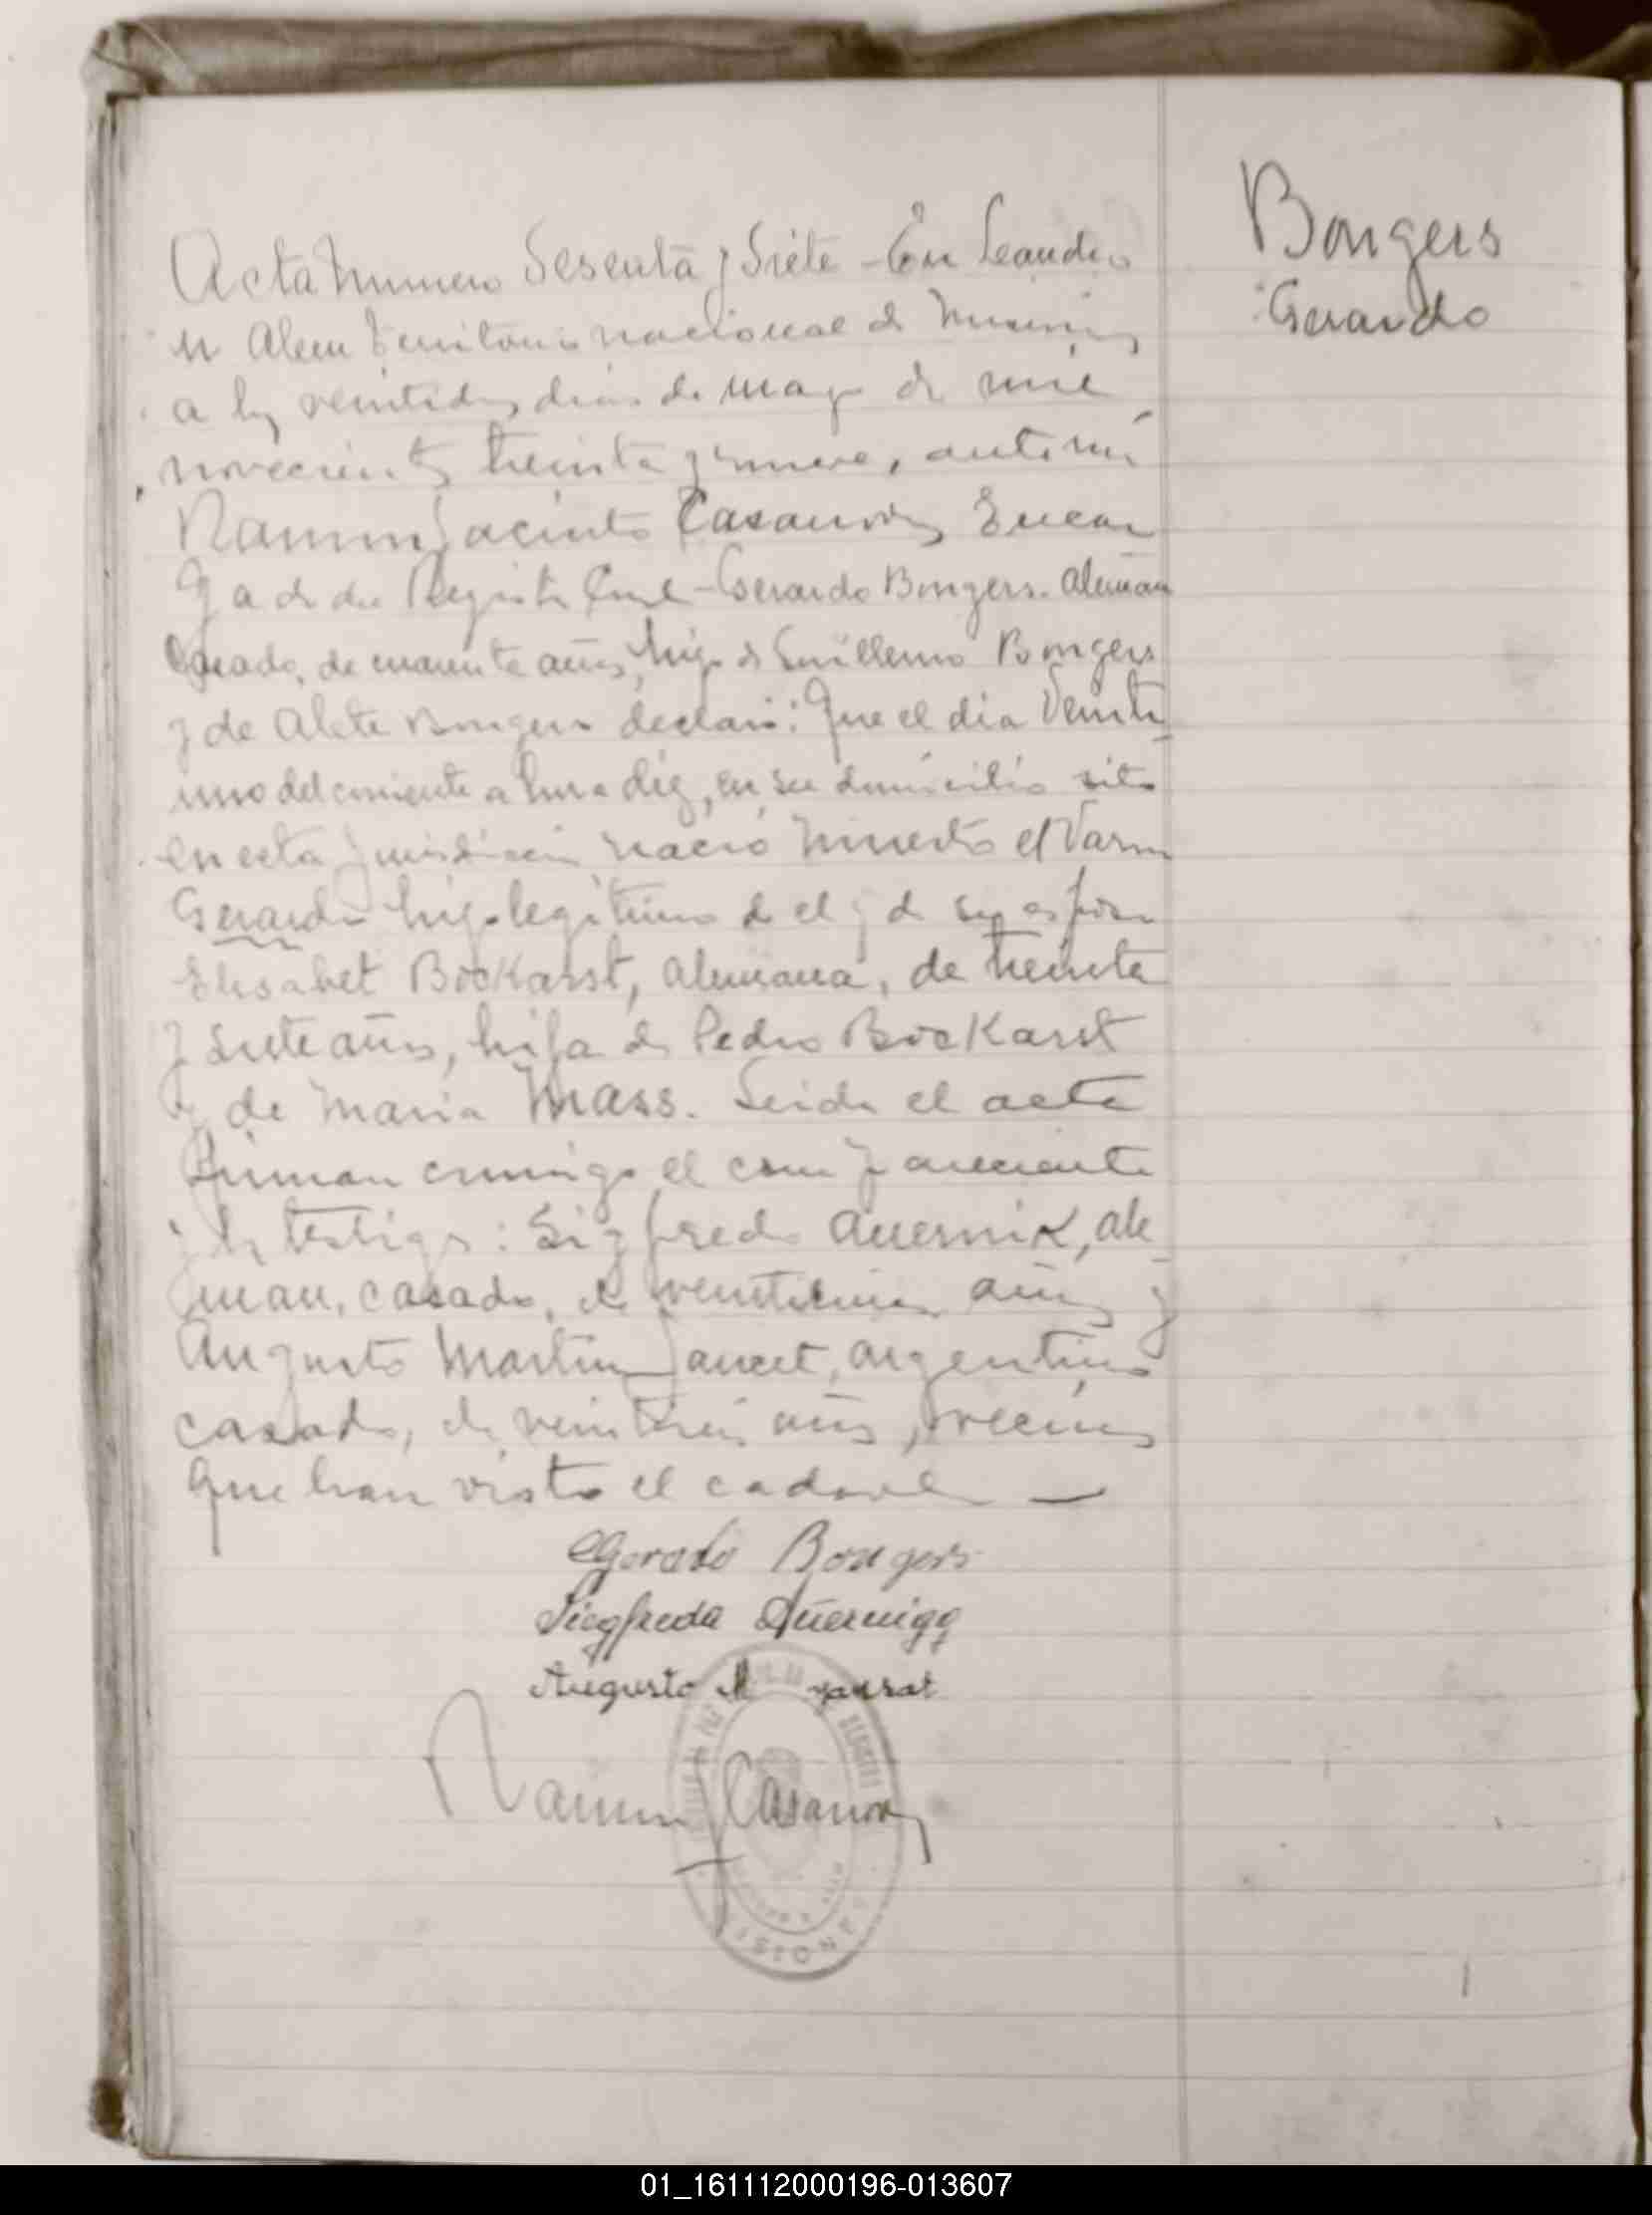 Acta Numero Sesenta y Siete - En Leandro
N Alem Territorio nacional de Misiones
a los veintidos dias de mayo de mil
novecientos treinta y nueve, ante mi
Ramon Jacinto Casanova, Encar
gado del Registro Civil - Gerardo Bongers. Aleman
Casado, de cuarenta años, hijo de Guillermo Bongers
y de Alete Bongers declaró: Que el dia Veinti
uno del corriente a hora diez, en su domicilio sito
en esta jurisdiccion nació muerto el Varon
Gerardo hijo legitimo de el y de su esposa
Elisabet Bockarst, Alemana, de treinta
y siete años, hija de Pedro Bockarst
y de Maria Mass. Leida el acta
firman conmigo el compareciente
y los testigos: Sigfredo Quernik, ale
man, casado, de años y
Augusto Martin argentino
casado, de años, vecinos
que han visto el cadaver
Gerardo Bongers
Siegfreda Quernigg
Augusto M
Ramon J Casanova
MISIONES
Bongers
Gerardo
01_161112000196-013607